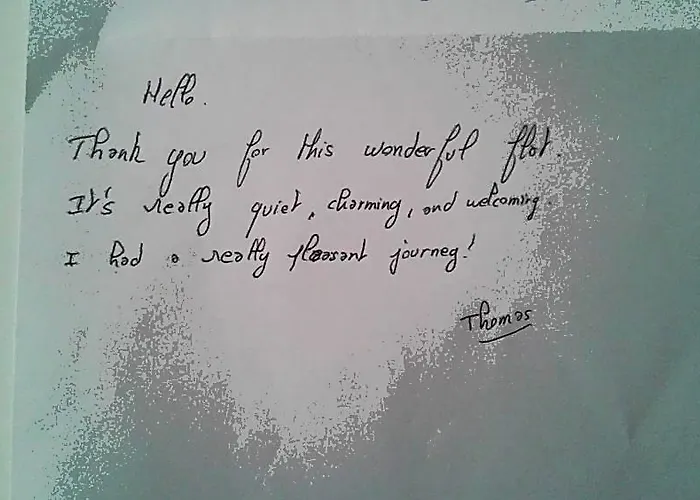 Hello.
Thank you for this wonderful flat.
It's really quiet, charming, and welcoming.
I had a really pleasant journey!
Thomas